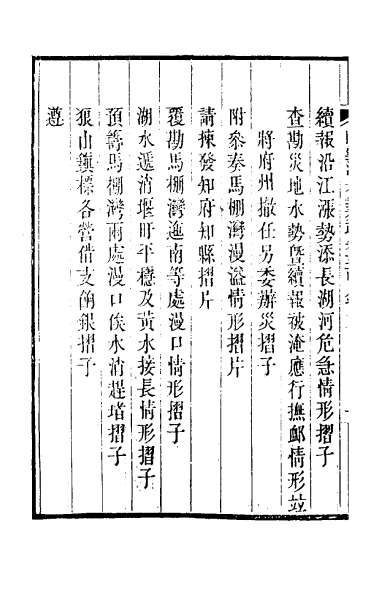 續報沿江漲勢添長湖河危急情形摺子
查勘災地水勢暨續報被淹應行撫䘏情形並
將府州撤任另委辦災摺子
附參奏馬棚灣漫溢情形摺片
請揀發知府知縣摺片
覆勘馬棚灣迤南等處漫口情形摺子
湖水遞消堰盱平穩及黃水接長情形摺子
預籌馬棚灣兩處漫口俟水消趕堵摺子
狼山鎮標各營借支餉銀摺子
遵